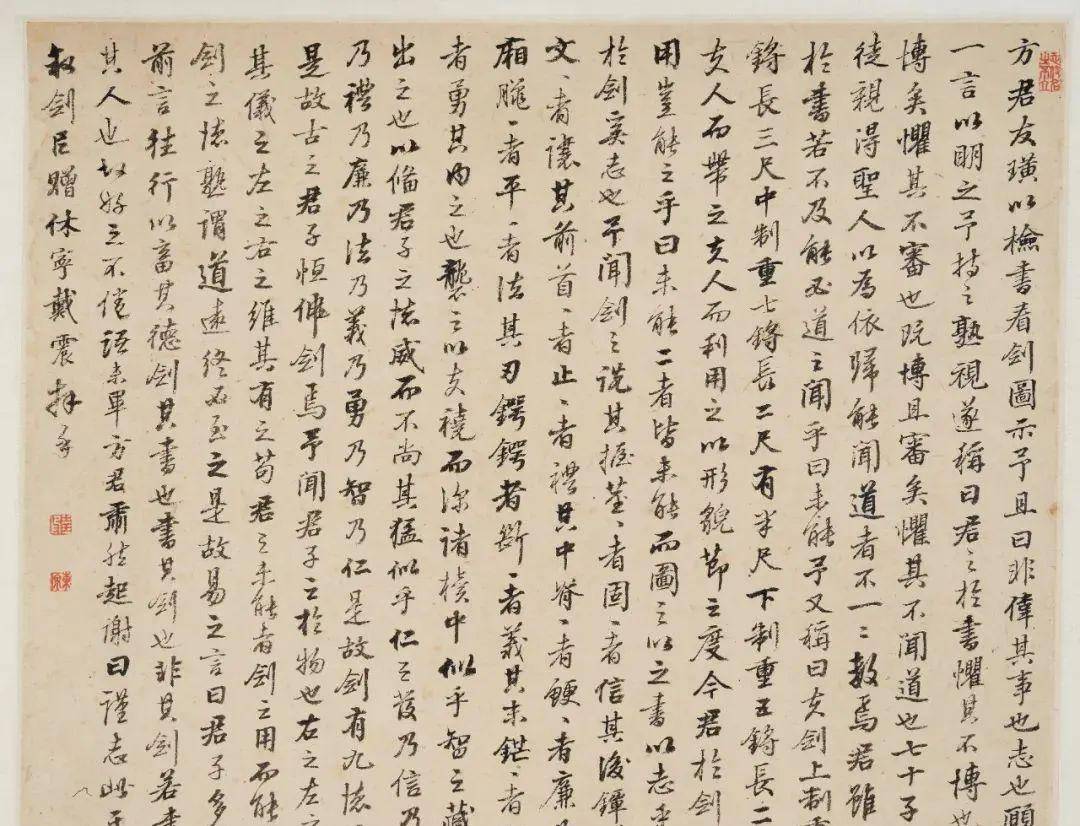 方君友璜以檢書看劍圖示予且曰非偉其事也志也願
一言以明之予持之熟視遂稱曰君之於書懼其不博也
博矣懼其不審也既博且審矣懼其不聞道也七十子
徒親得聖人以為依歸能聞道者不一二數焉君雖
於書若不及能必道之聞乎曰未能予又稱曰夫劍上制重
鋝長三尺中制重七鋝長二尺有半尺下制重五鋝長二
夫人而舉之夫人而利用之以形貌節之度今君於劍
用豈能之乎曰未能二者皆未能而圖之以之書以志乎
於劍奚志也予聞劍之說其握莖莖者固固者信其後鐔
文文者讓其前首首者止止者禮其中脊脊者鯁鯁者廉
廂臘臘者平平者法其刃鍔鍔者斷斷者義其末鋩鋩者
者勇其內之也襲之以夫襓而深諸櫝中似乎智之藏
出之也以脩君子之德威而不尚其猛似乎仁之發乃信乃
乃禮乃廉乃法乃義乃勇乃智乃仁是故劍有九德
是故古之君子恆佩劍焉予聞君子之於物也右之左之
其儀之左之右之維其有之苟君之未能者劍之用而能
劍之德孰謂道遠終不至之是故易之言曰君子多
前言往行以畜其德劍其書也書其劍也非其劍若書
其人也故好之不倦語未畢方君肅然起謝曰謹志此乎
叙劍臣贈休寧戴震拜手